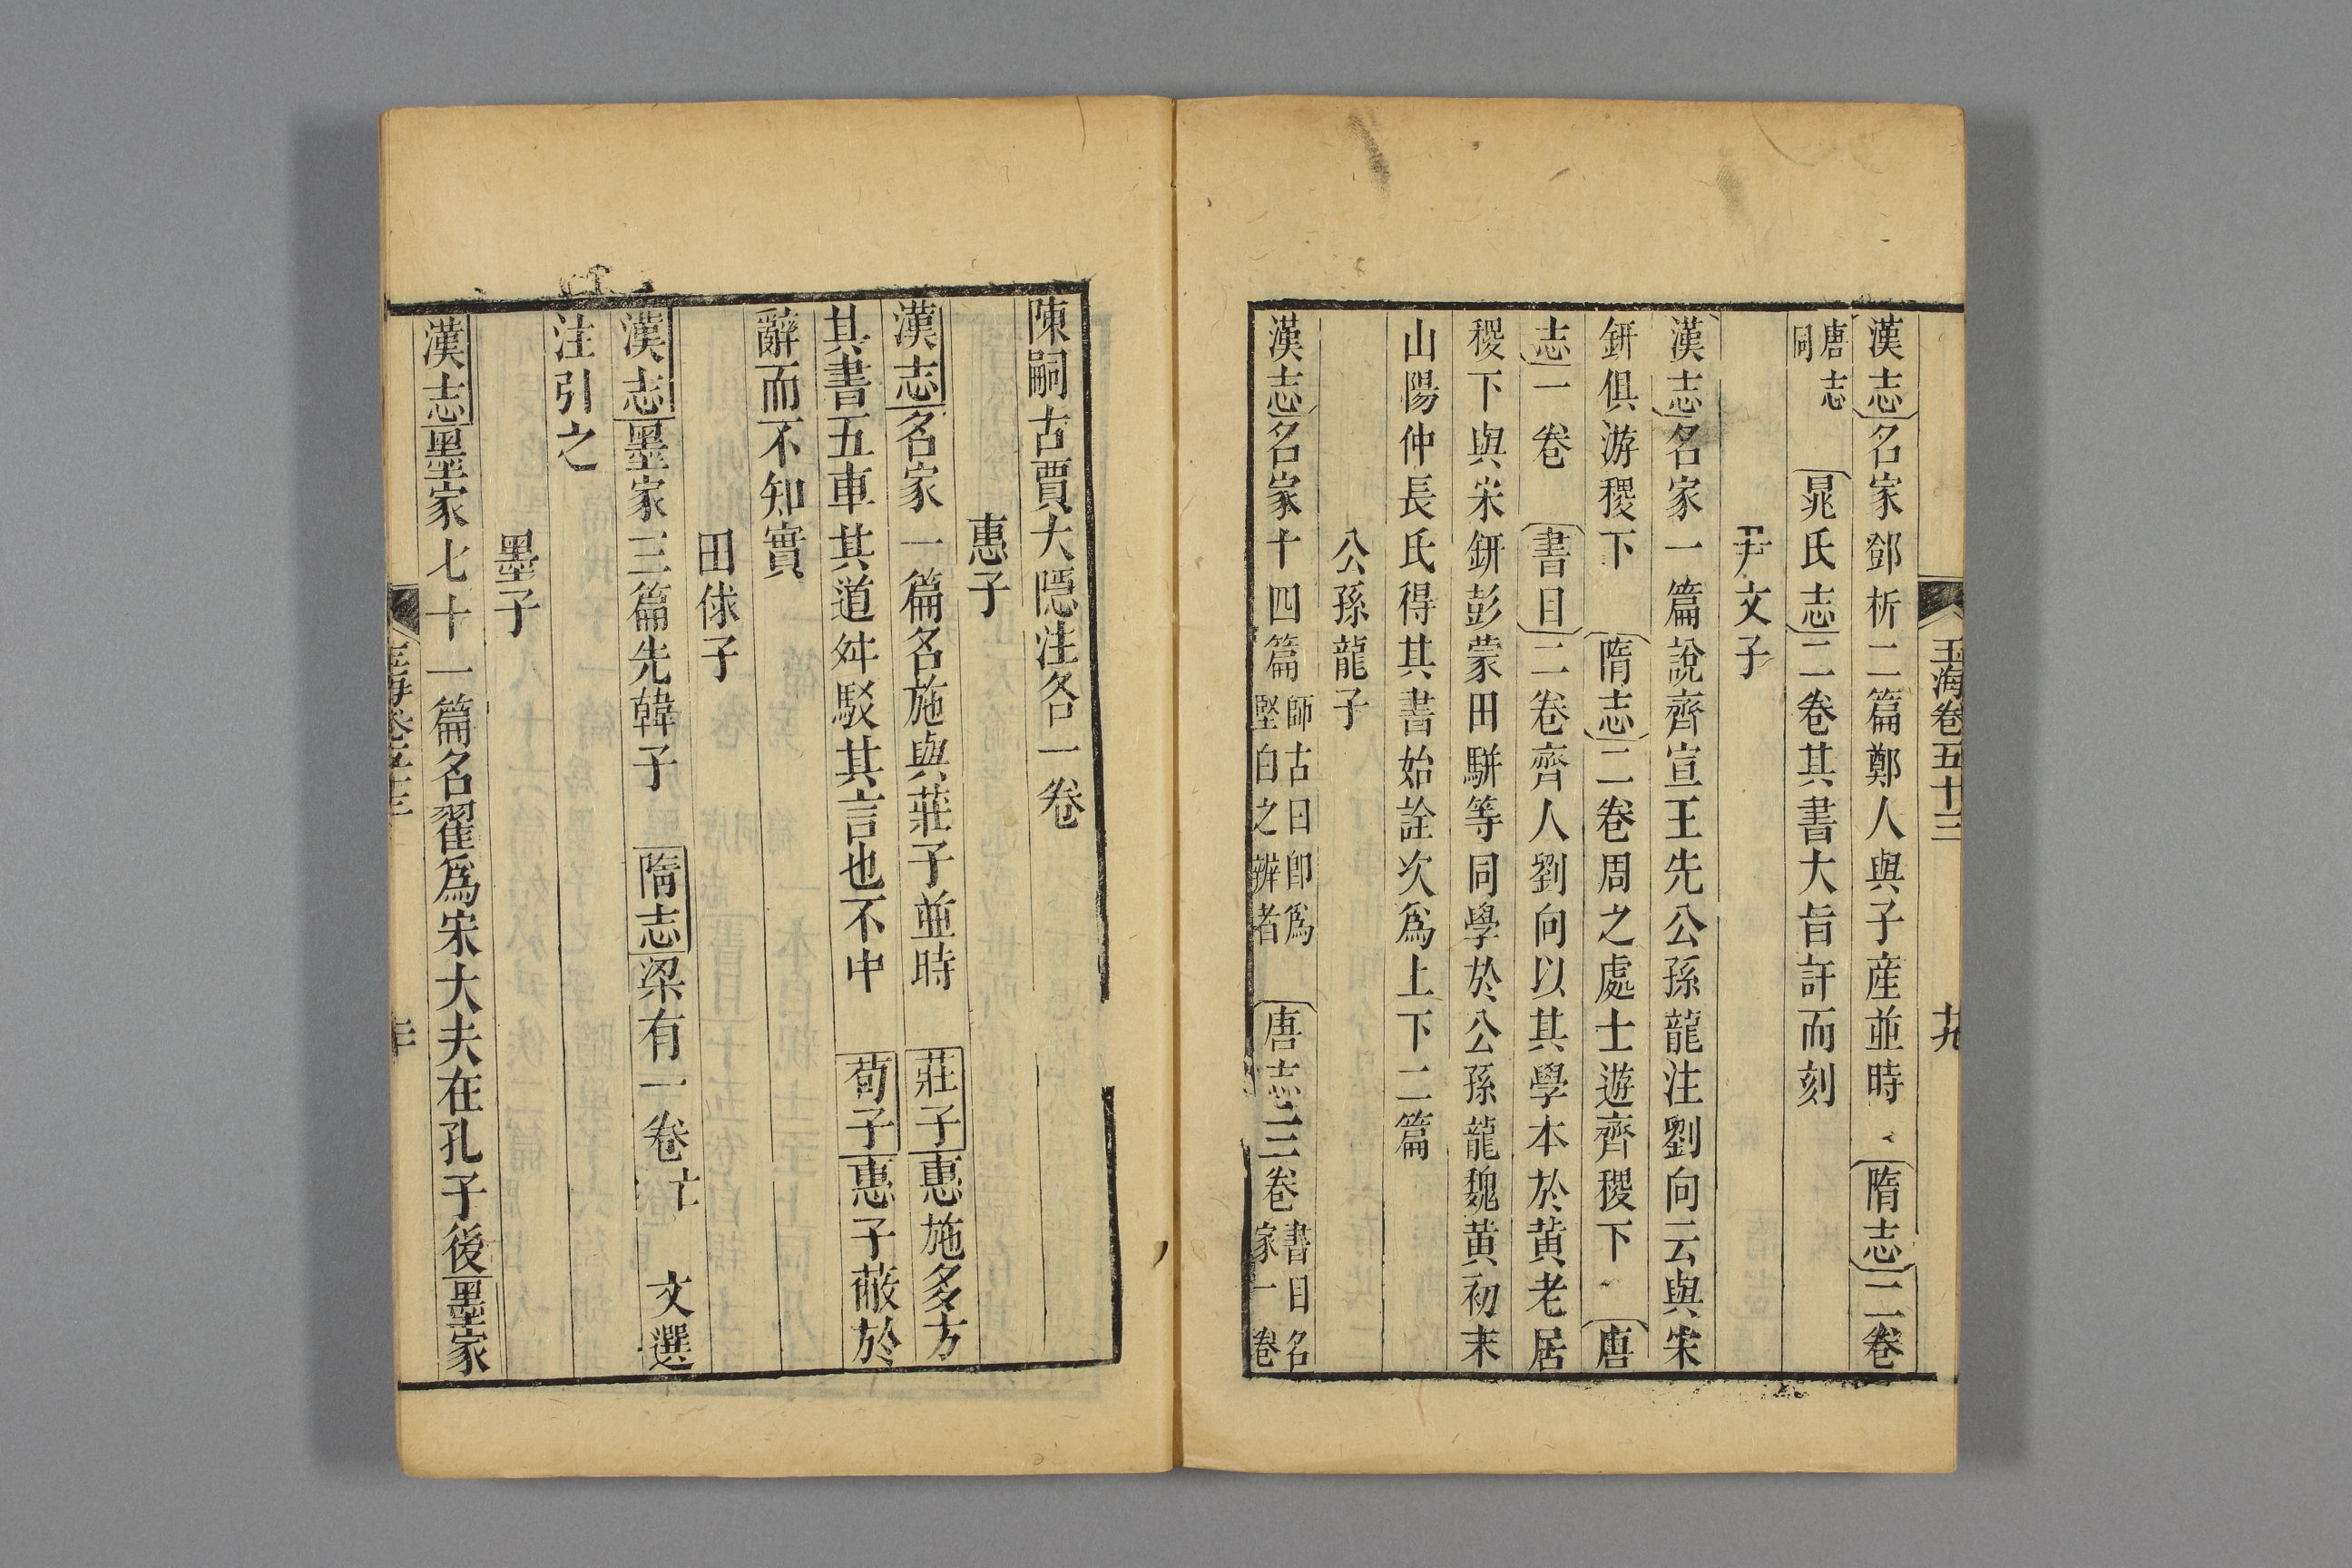 玉海卷五十三
十九
漢志名家鄧析二篇鄭人與子產並時 隋志二卷
唐志同 晁氏志二卷其書大旨訐而刻
尹文子
漢志名家一篇說齊宣王先公孫龍注劉向云與宋
鈃俱游稷下 隋志二卷周之處士遊齊稷下 唐
志一卷 書目二卷齊人劉向以其學本於黃老居
稷下與宋鈃彭蒙田駢等同學於公孫龍魏黃初末
山陽仲長氏得其書始詮次爲上下二篇
公孫龍子
漢志名家十四篇師古曰即爲堅白之辨者 唐志三卷書目名家一卷
陳嗣古賈大隱注各一卷
惠子
漢志名家一篇名施與莊子並時 莊子惠施多方
其書五車其道舛駁其言也不中 荀子惠子蔽於
辭而不知實
田俅子
漢志墨家三篇先韓子 隋志梁有一卷亡 文選
注引之
墨子
漢志墨家七十一篇名翟爲宋大夫在孔子後墨家
玉海卷五十三
二十